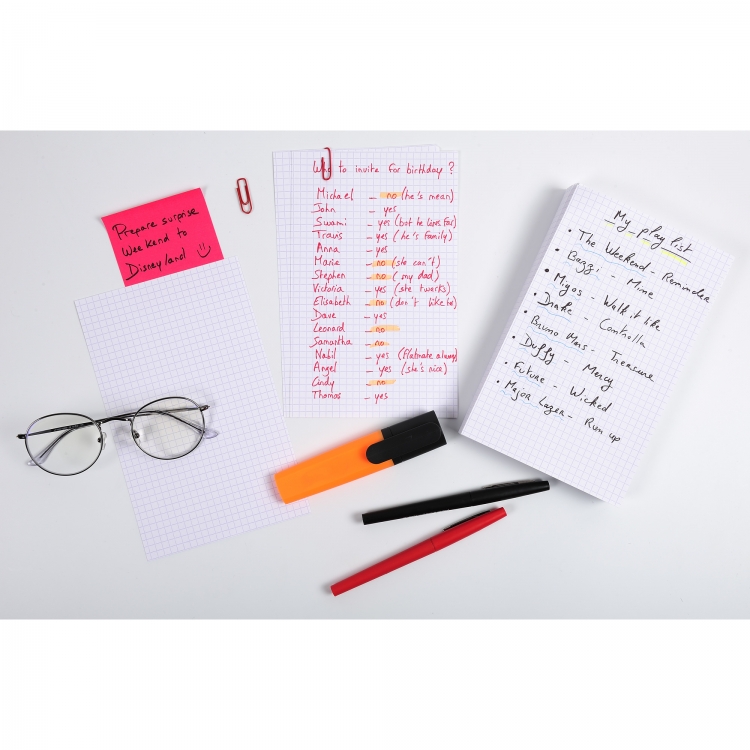 Prepare surprise
Weekend to
Disneyland
Who to invite for birthday ?
Michael – no (he's mean)
John – yes
Swami – yes (but he lives far)
Travis – yes (he's family)
Anna – yes
Marie – no (she can't)
Stephen – no (my dad)
Victoria – yes (she twerks)
Elisabeth – no (don't like he)
Dave – yes
Leonard – no
Samantha – no
Nabil – yes (flatmate always)
Angel – yes (she's nice)
Cindy – no
Thomas – yes
My play list
• The Weekend - Reminder
• Bazzi - Mine
• Migos - Walk it like
• Drake - Controlla
• Bruno Mars - Treasure
• Duffy - Mercy
• Future - Wicked
• Major Lazer - Run up